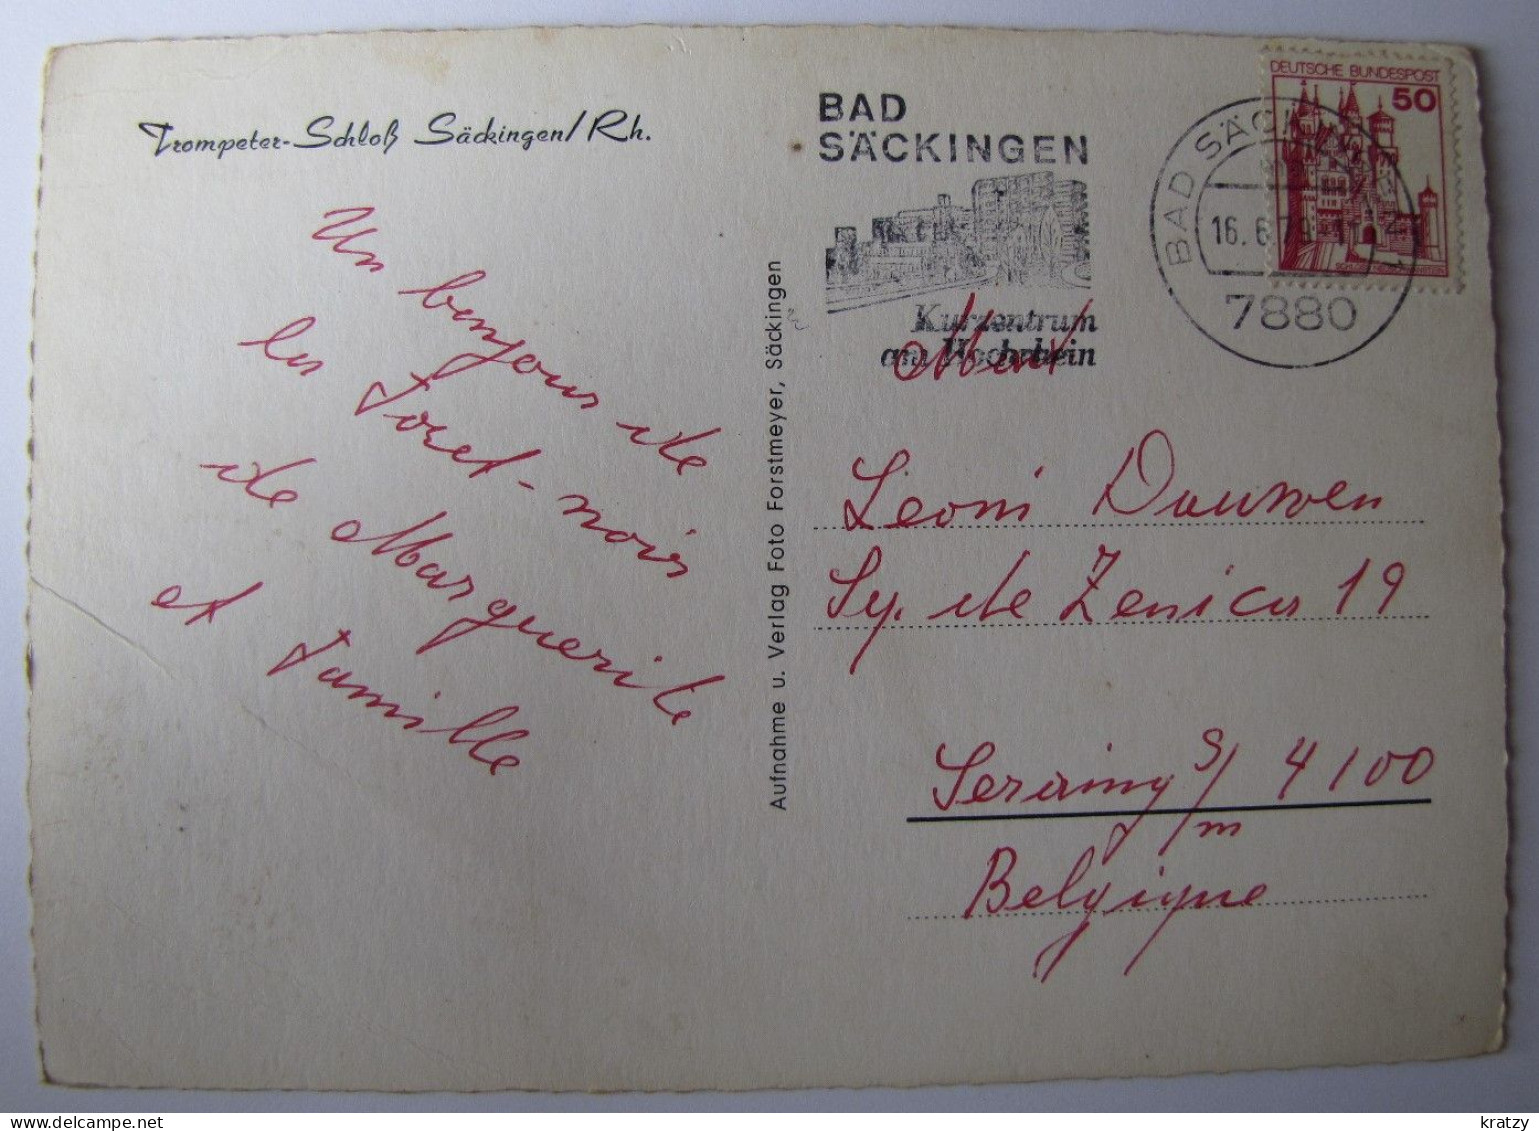 Trompeter-Schloß Säckingen/Rh.
Un bonjour de
la Foret-noir
de Marguerite
et Famille
Aufnahme u. Verlag Foto Forstmeyer, Säckingen
BAD
SÄCKINGEN
Kurzentrum
am Hochrhein
DEUTSCHE BUNDESPOST
50
BAD SÄCKINGEN
16. 6.
7880
Leoni Dauwen
de Zenica 19
Seraing s/m 4100
Belgique
kratzy